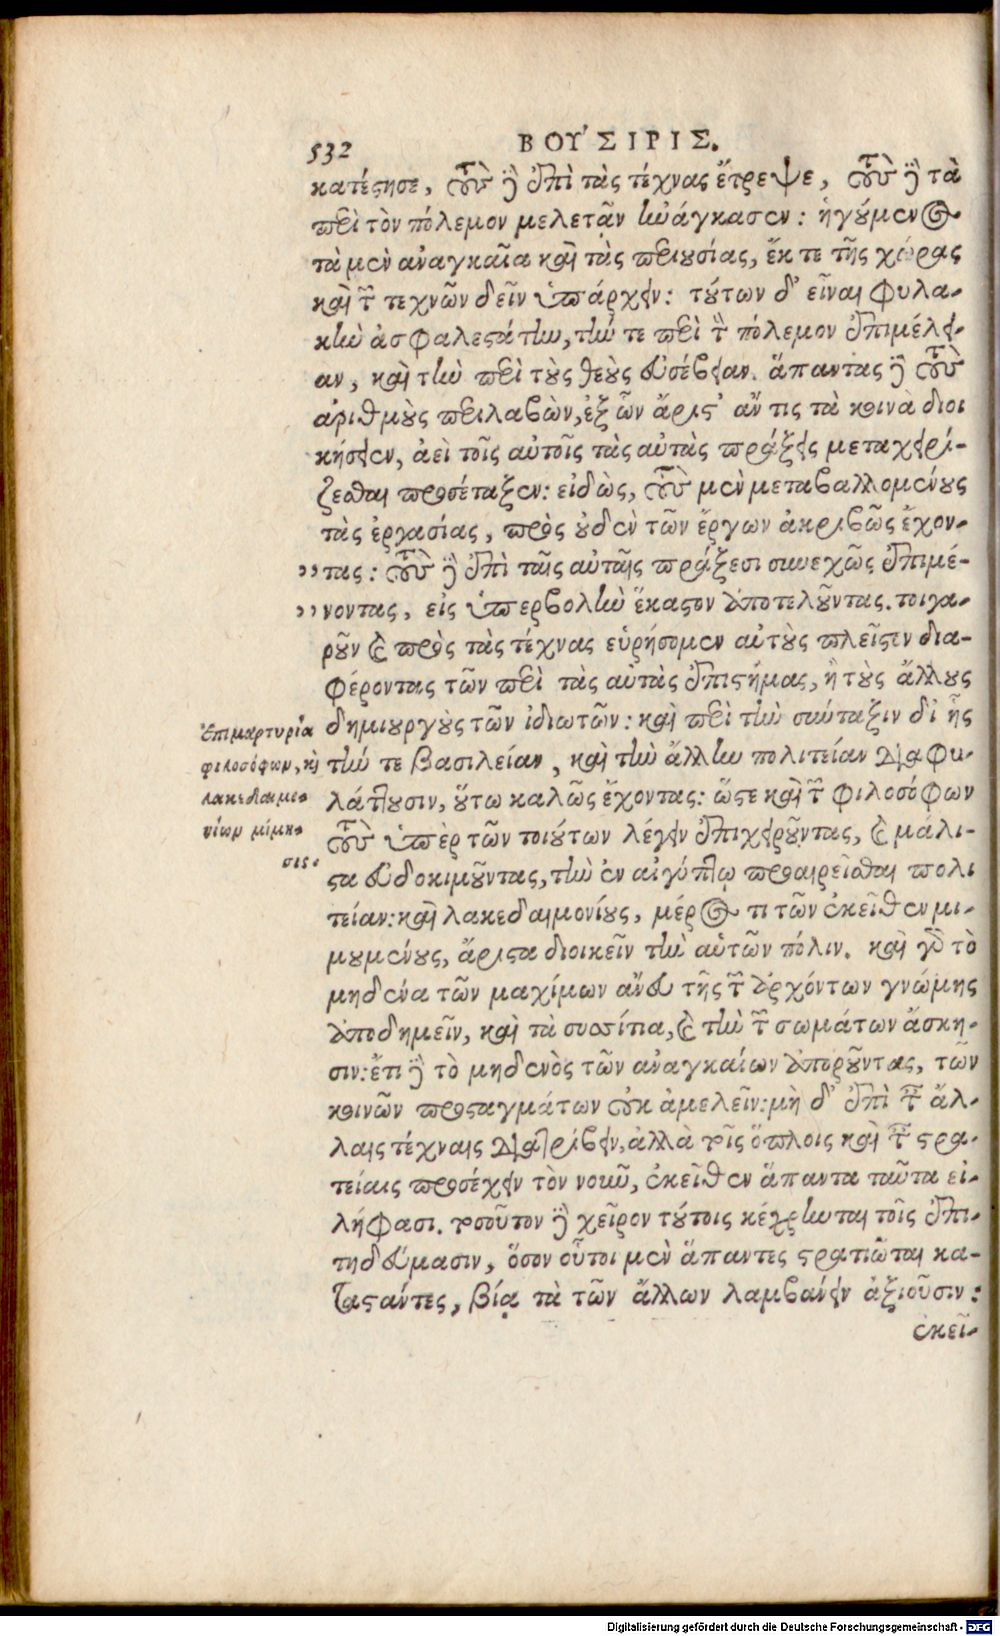 532 ΒΟΥΣΙΡΙΣ.
κατέστησε, τοὺς δὲ ἐπὶ τὰς τέχνας ἔτρεψε, τοὺς δὲ τὰ
περὶ τὸν πόλεμον μελετᾶν ἠνάγκασεν: ἡγούμενος
τὰ μὲν ἀναγκαῖα καὶ τὰς περιουσίας, ἔκ τε τῆς χώρας
καὶ τῶν τεχνῶν δεῖν ὑπάρχειν: τούτων δ' εἶναι φυλα-
κὴν ἀσφαλεστάτην, τήν τε περὶ τὸν πόλεμον ἐπιμέλει-
αν, καὶ τὴν περὶ τοὺς θεοὺς εὐσέβειαν. ἅπαντας δὲ τοὺς
ἀριθμοὺς περιλαβὼν, ἐξ ὧν ἄριστ' ἄν τις τὰ κοινὰ διοι
κήσειεν, ἀεὶ τοῖς αὐτοῖς τὰς αὐτὰς πράξεις μεταχειρί-
ζεσθαι προσέταξεν: εἰδὼς, τοὺς μὲν μεταβαλλομένους
τὰς ἐργασίας, πρὸς οὐδὲν τῶν ἔργων ἀκριβῶς ἔχον-
,, τας: τοὺς δὲ ἐπὶ ταῖς αὐταῖς πράξεσι συνεχῶς ἐπιμέ-
,, νοντας, εἰς ὑπερβολὴν ἕκαστον ἀποτελοῦντας. τοιγα-
ροῦν καὶ πρὸς τὰς τέχνας εὑρήσομεν αὐτοὺς πλεῖστιν δια-
φέροντας τῶν περὶ τὰς αὐτὰς ἐπιστήμας, ἢ τοὺς ἄλλους
δημιουργοὺς τῶν ἰδιωτῶν: καὶ περὶ τὴν σύνταξιν δι' ἧς
τήν τε βασιλείαν, καὶ τὴν ἄλλην πολιτείαν διαφυ-
λάττουσιν, οὕτω καλῶς ἔχοντας: ὥστε καὶ τῶν φιλοσόφων
τοὺς ὑπὲρ τῶν τοιούτων λέγειν ἐπιχειροῦντας, καὶ μάλι-
στα εὐδοκιμοῦντας, τὴν ἐν αἰγύπτῳ προαιρεῖσθαι πολι
τείαν: καὶ λακεδαιμονίους, μέρος τι τῶν ἐκεῖθεν μι-
μουμένους, ἄριστα διοικεῖν τὴν αὑτῶν πόλιν. καὶ γὰρ τὸ
μηδένα τῶν μαχίμων ἄνευ τῆς τῶν ἀρχόντων γνώμης
ἀποδημεῖν, καὶ τὰ συσσίτια, καὶ τὴν τῶν σωμάτων ἄσκη-
σιν: ἔτι δὲ τὸ μηδενὸς τῶν ἀναγκαίων ἀποροῦντας, τῶν
κοινῶν προσταγμάτων οὐκ ἀμελεῖν: μὴ δ' ἐπὶ ταῖς ἄλ-
λαις τέχναις διατρίβειν, ἀλλὰ τοῖς ὅπλοις καὶ ταῖς στρα-
τείαις προσέχειν τὸν νοῦν, ἐκεῖθεν ἅπαντα ταῦτα εἰ-
λήφασι. τοσοῦτον δὲ χεῖρον τούτοις κέχρηνται τοῖς ἐπι-
τηδεύμασιν, ὅσον οὗτοι μὲν ἅπαντες στρατιῶται κα-
ταστάντες, βίᾳ τὰ τῶν ἄλλων λαμβάνειν ἀξιοῦσιν:
ἐκεῖ-
Ἐπιμαρτυρία
φιλοσόφων, καὶ
λακεδαιμο-
νίων μίμη-
σις.
Digitalisierung gefördert durch die Deutsche Forschungsgemeinschaft - DFG